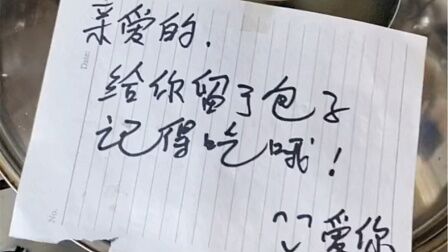 亲爱的.
给你留了包子
记得吃哦!
爱你
Date:
No.